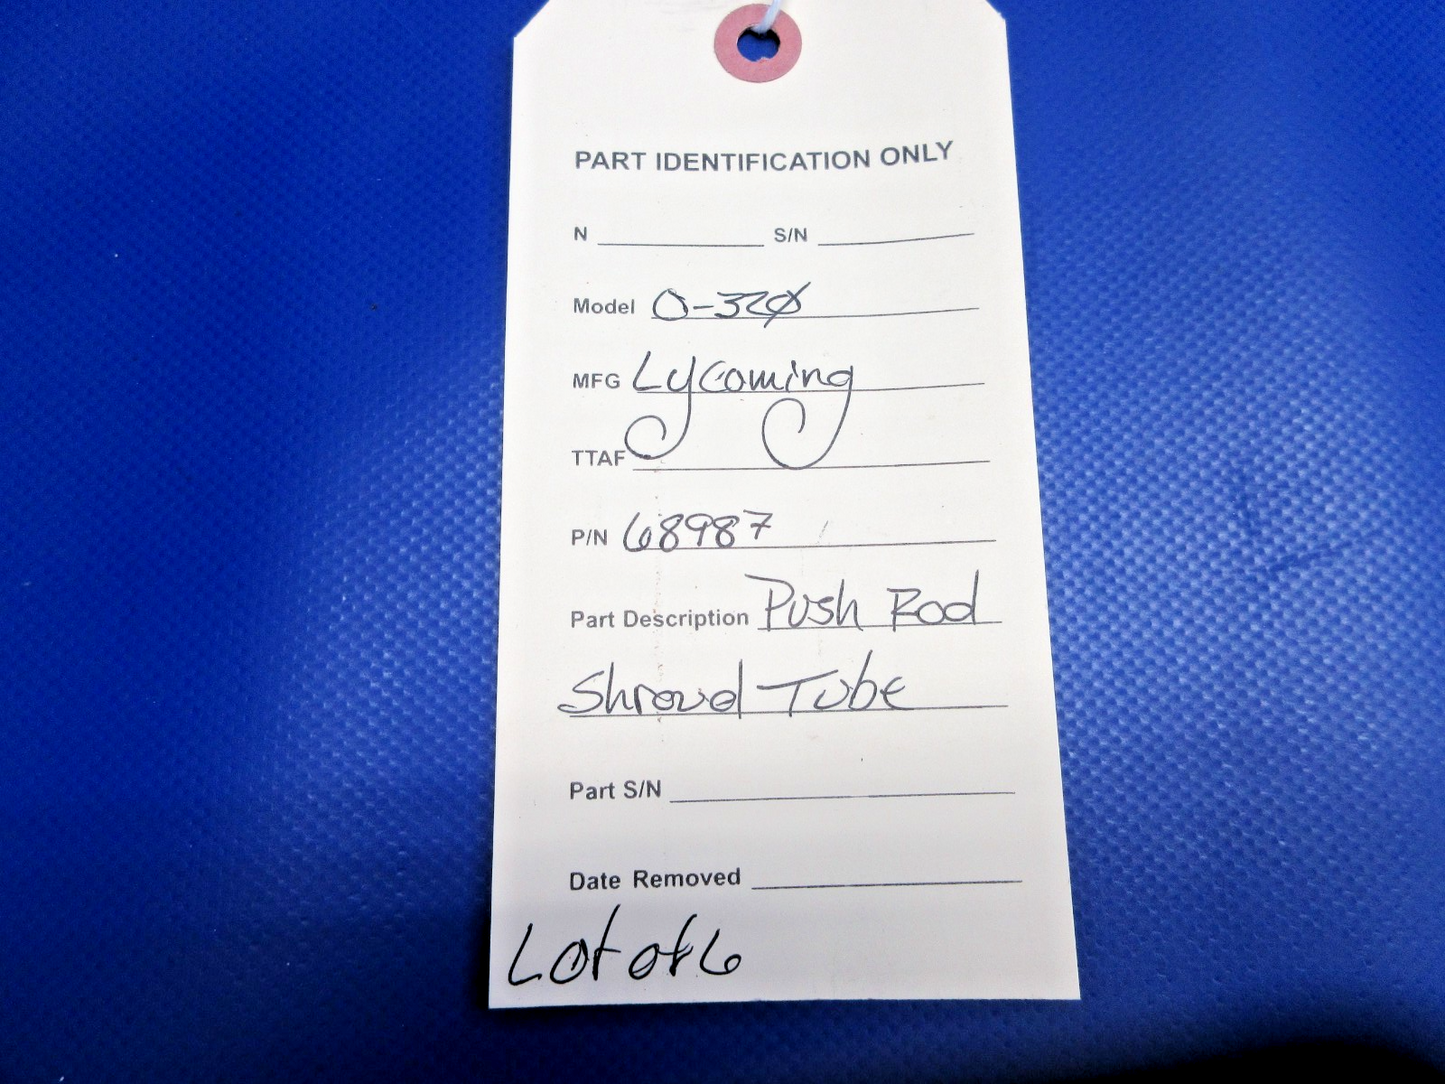 PART IDENTIFICATION ONLY
N S/N
Model O-320
MFG Lycoming
TTAF
P/N 68987
Part Description Push Rod
Shroud Tube
Part S/N
Date Removed
Lot of 6